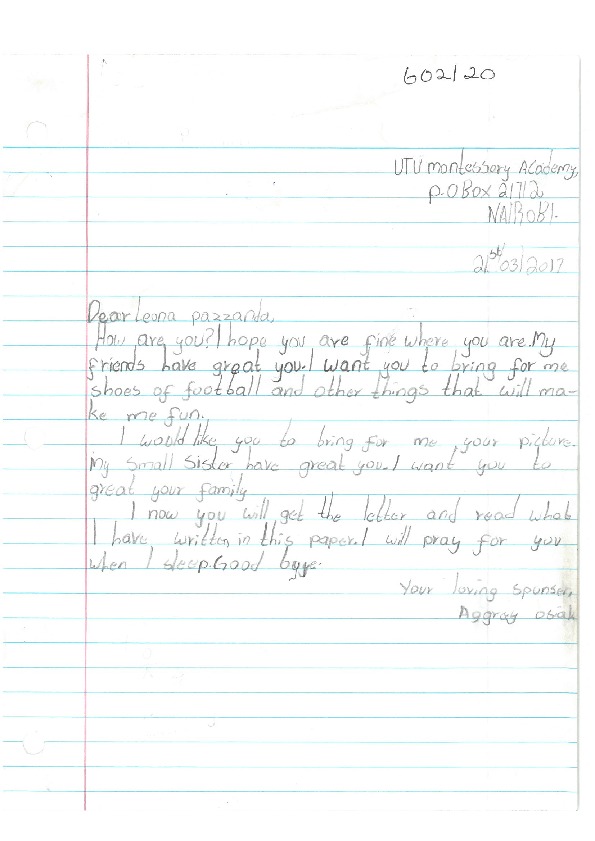 602/20
UTU montessory Academy,
P.O Box 21712
NAIROBI.
21st/03/2017
Dear leona pazzanda,
How are you? I hope you are fine where you are. My
friends have great you. I want you to bring for me
shoes of football and other things that will ma-
ke me fun.
I would like you to bring for me your picture.
My small sister have great you. I want you to
great your family
I now you will get the letter and read what
I have written in this paper. I will pray for you
when I sleep. Good byye.
Your loving spunser,
Aggray